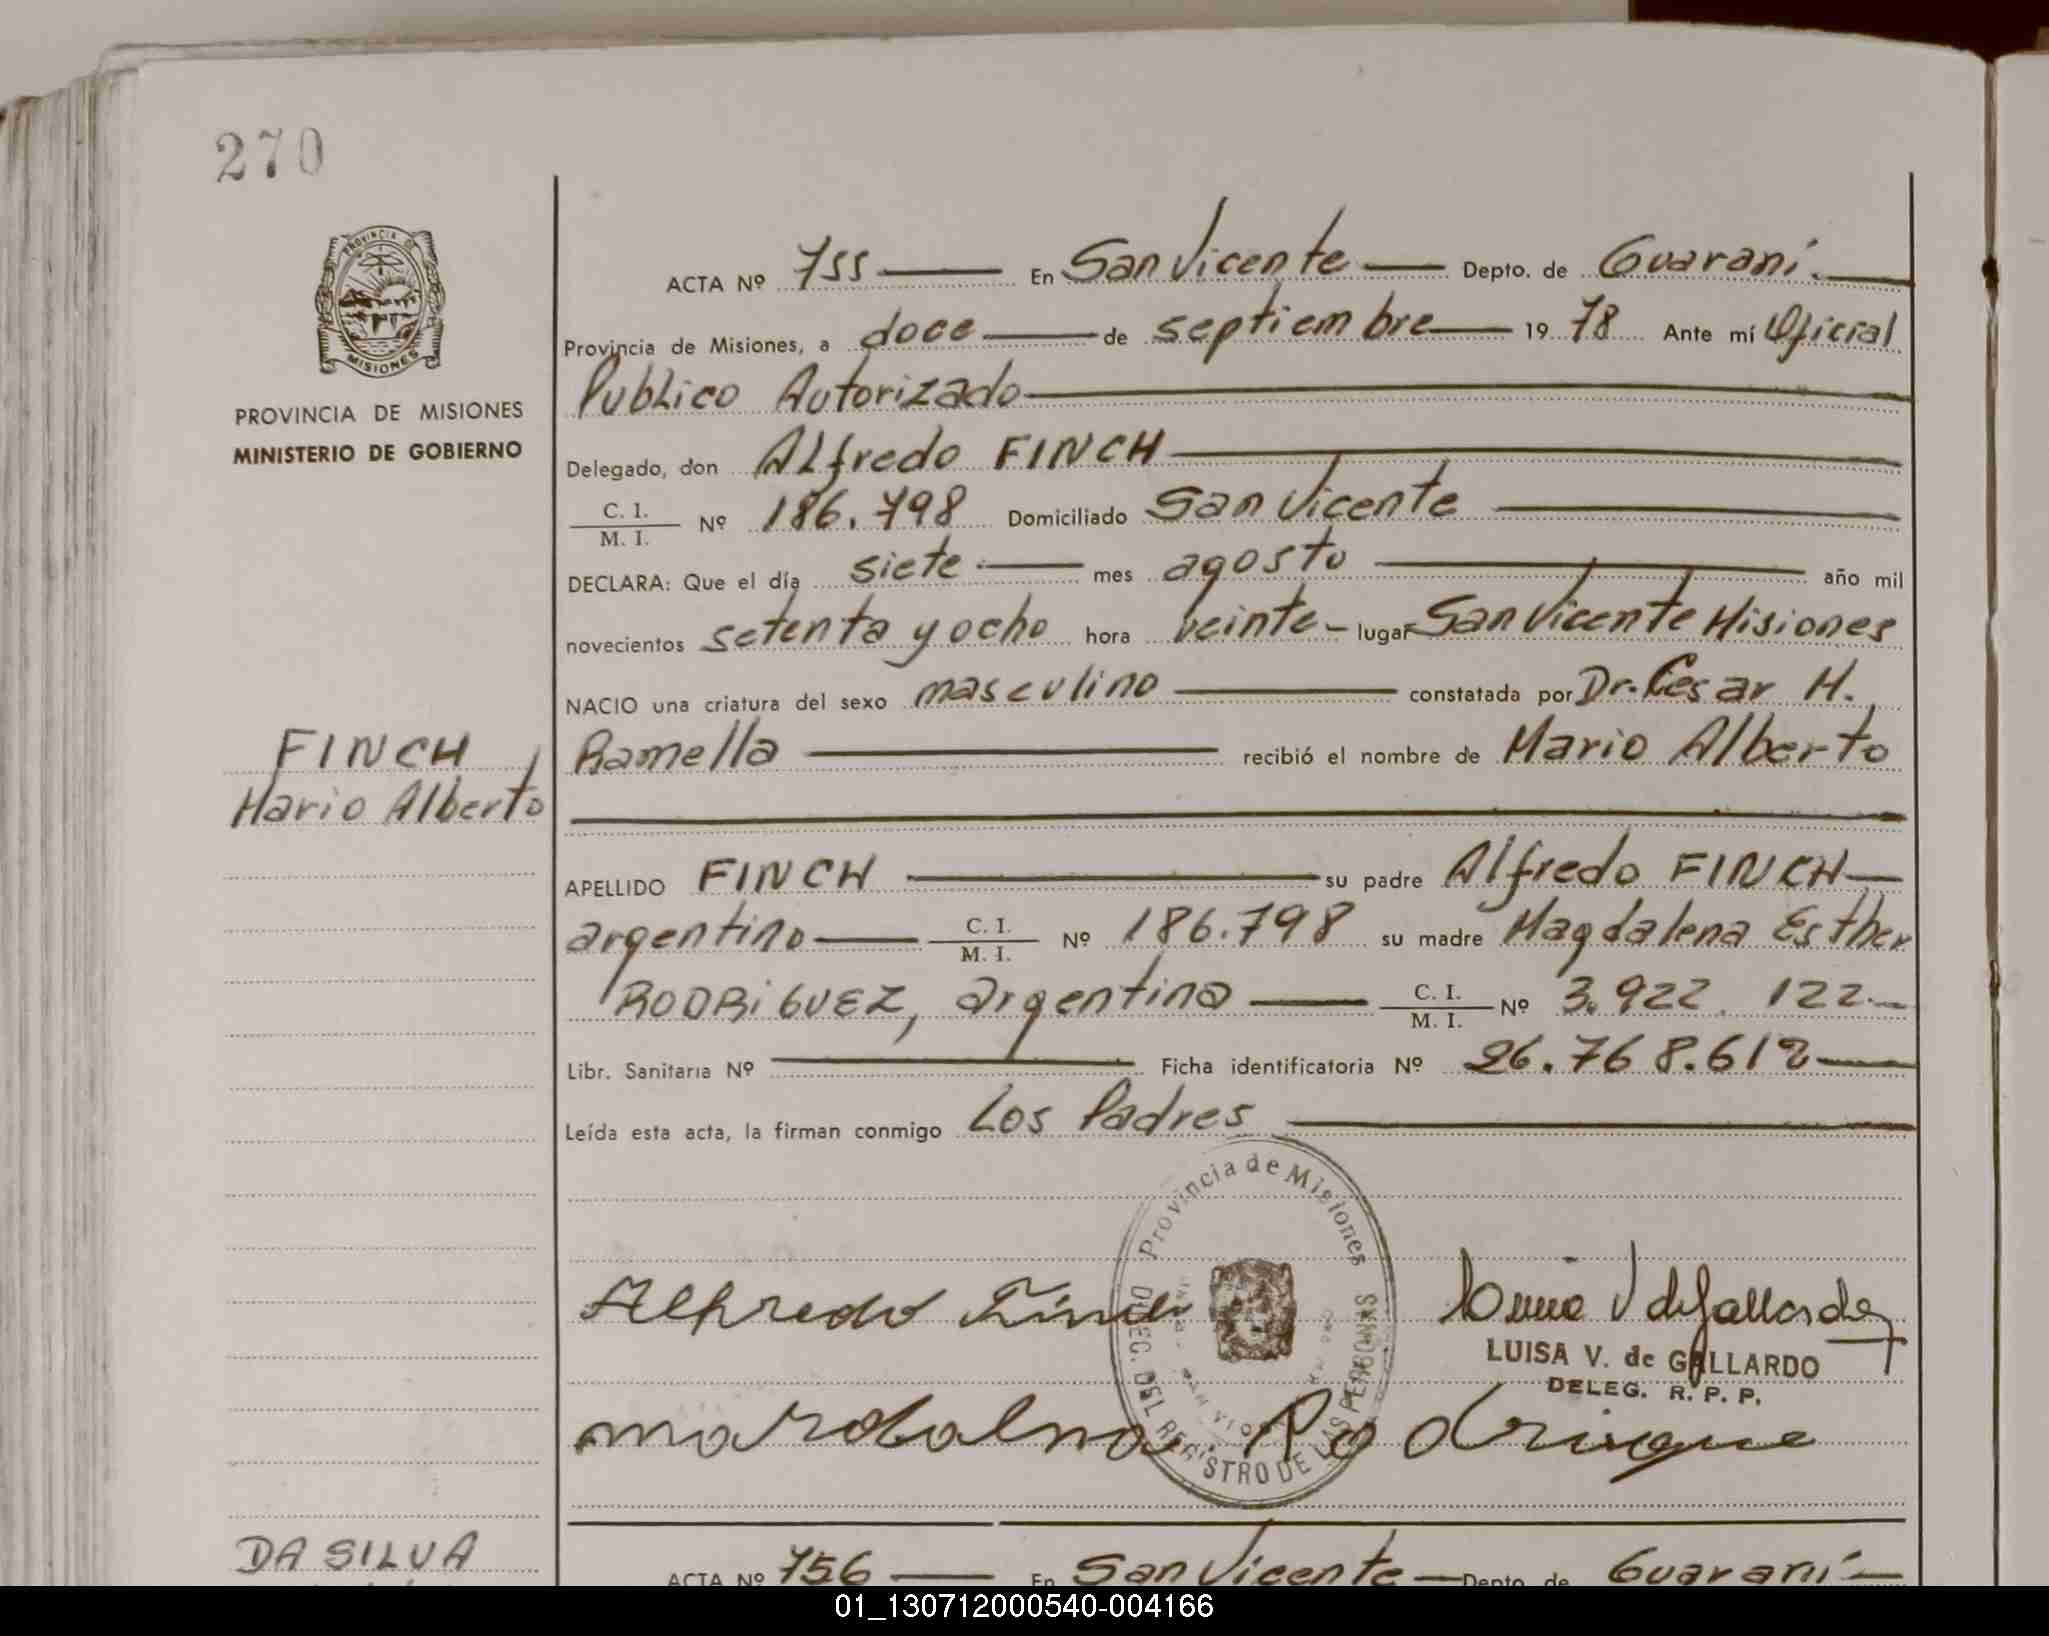 270
PROVINCIA DE
MISIONES
PROVINCIA DE MISIONES
MINISTERIO DE GOBIERNO
ACTA Nº 755 En San Vicente Depto. de Guaraní.
Provincia de Misiones, a doce de septiembre 19 78 Ante mí Oficial
Publico Autorizado
Delegado, don Alfredo FINCH
C. I. / M. I. Nº 186.798 Domiciliado San Vicente
DECLARA: Que el día siete mes agosto año mil
novecientos setenta y ocho hora veinte - lugar San Vicente Misiones
NACIO una criatura del sexo masculino constatada por Dr. Cesar H.
FINCH
Mario Alberto
Ramella recibió el nombre de Mario Alberto
APELLIDO FINCH su padre Alfredo FINCH
argentino C. I. / M. I. Nº 186.798 su madre Magdalena Esther
RODRIGUEZ, argentina C. I. / M. I. Nº 3.922.122
Libr. Sanitaria Nº Ficha identificatoria Nº 26.768.612
Leída esta acta, la firman conmigo Los Padres
Provincia de Misiones
DEL REGISTRO DE LAS PERSONAS
Alfredo
Luisa V de Gallardo
LUISA V. de GALLARDO
DELEG. R. P. P.
DA SILVA
ACTA Nº 756 En San Vicente Depto. de Guaraní
01_130712000540-004166